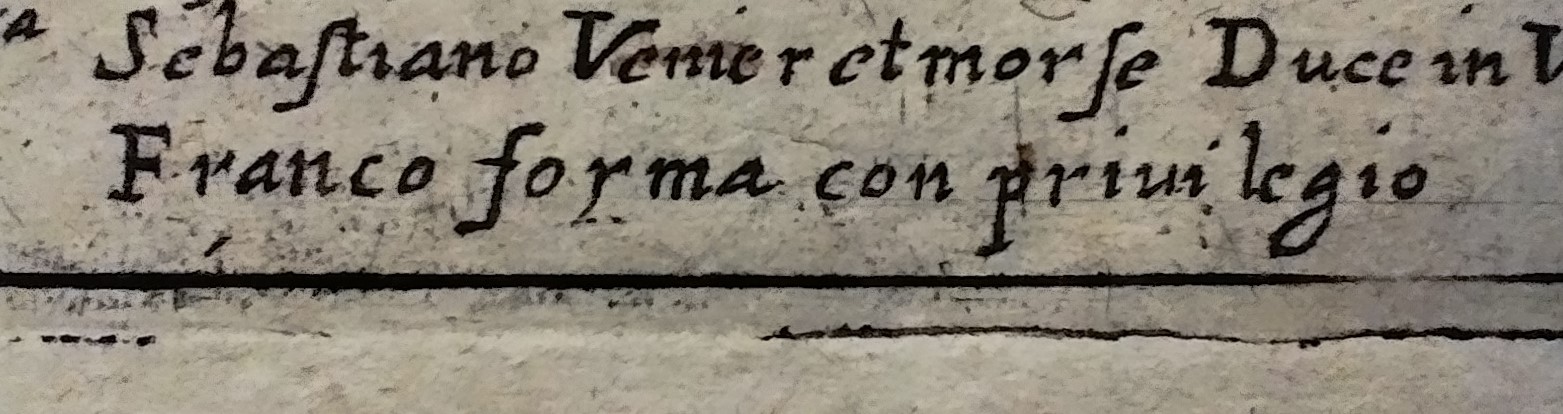 Sebaſtiano Venier et morſe Duce in
Franco forma con priuilegio